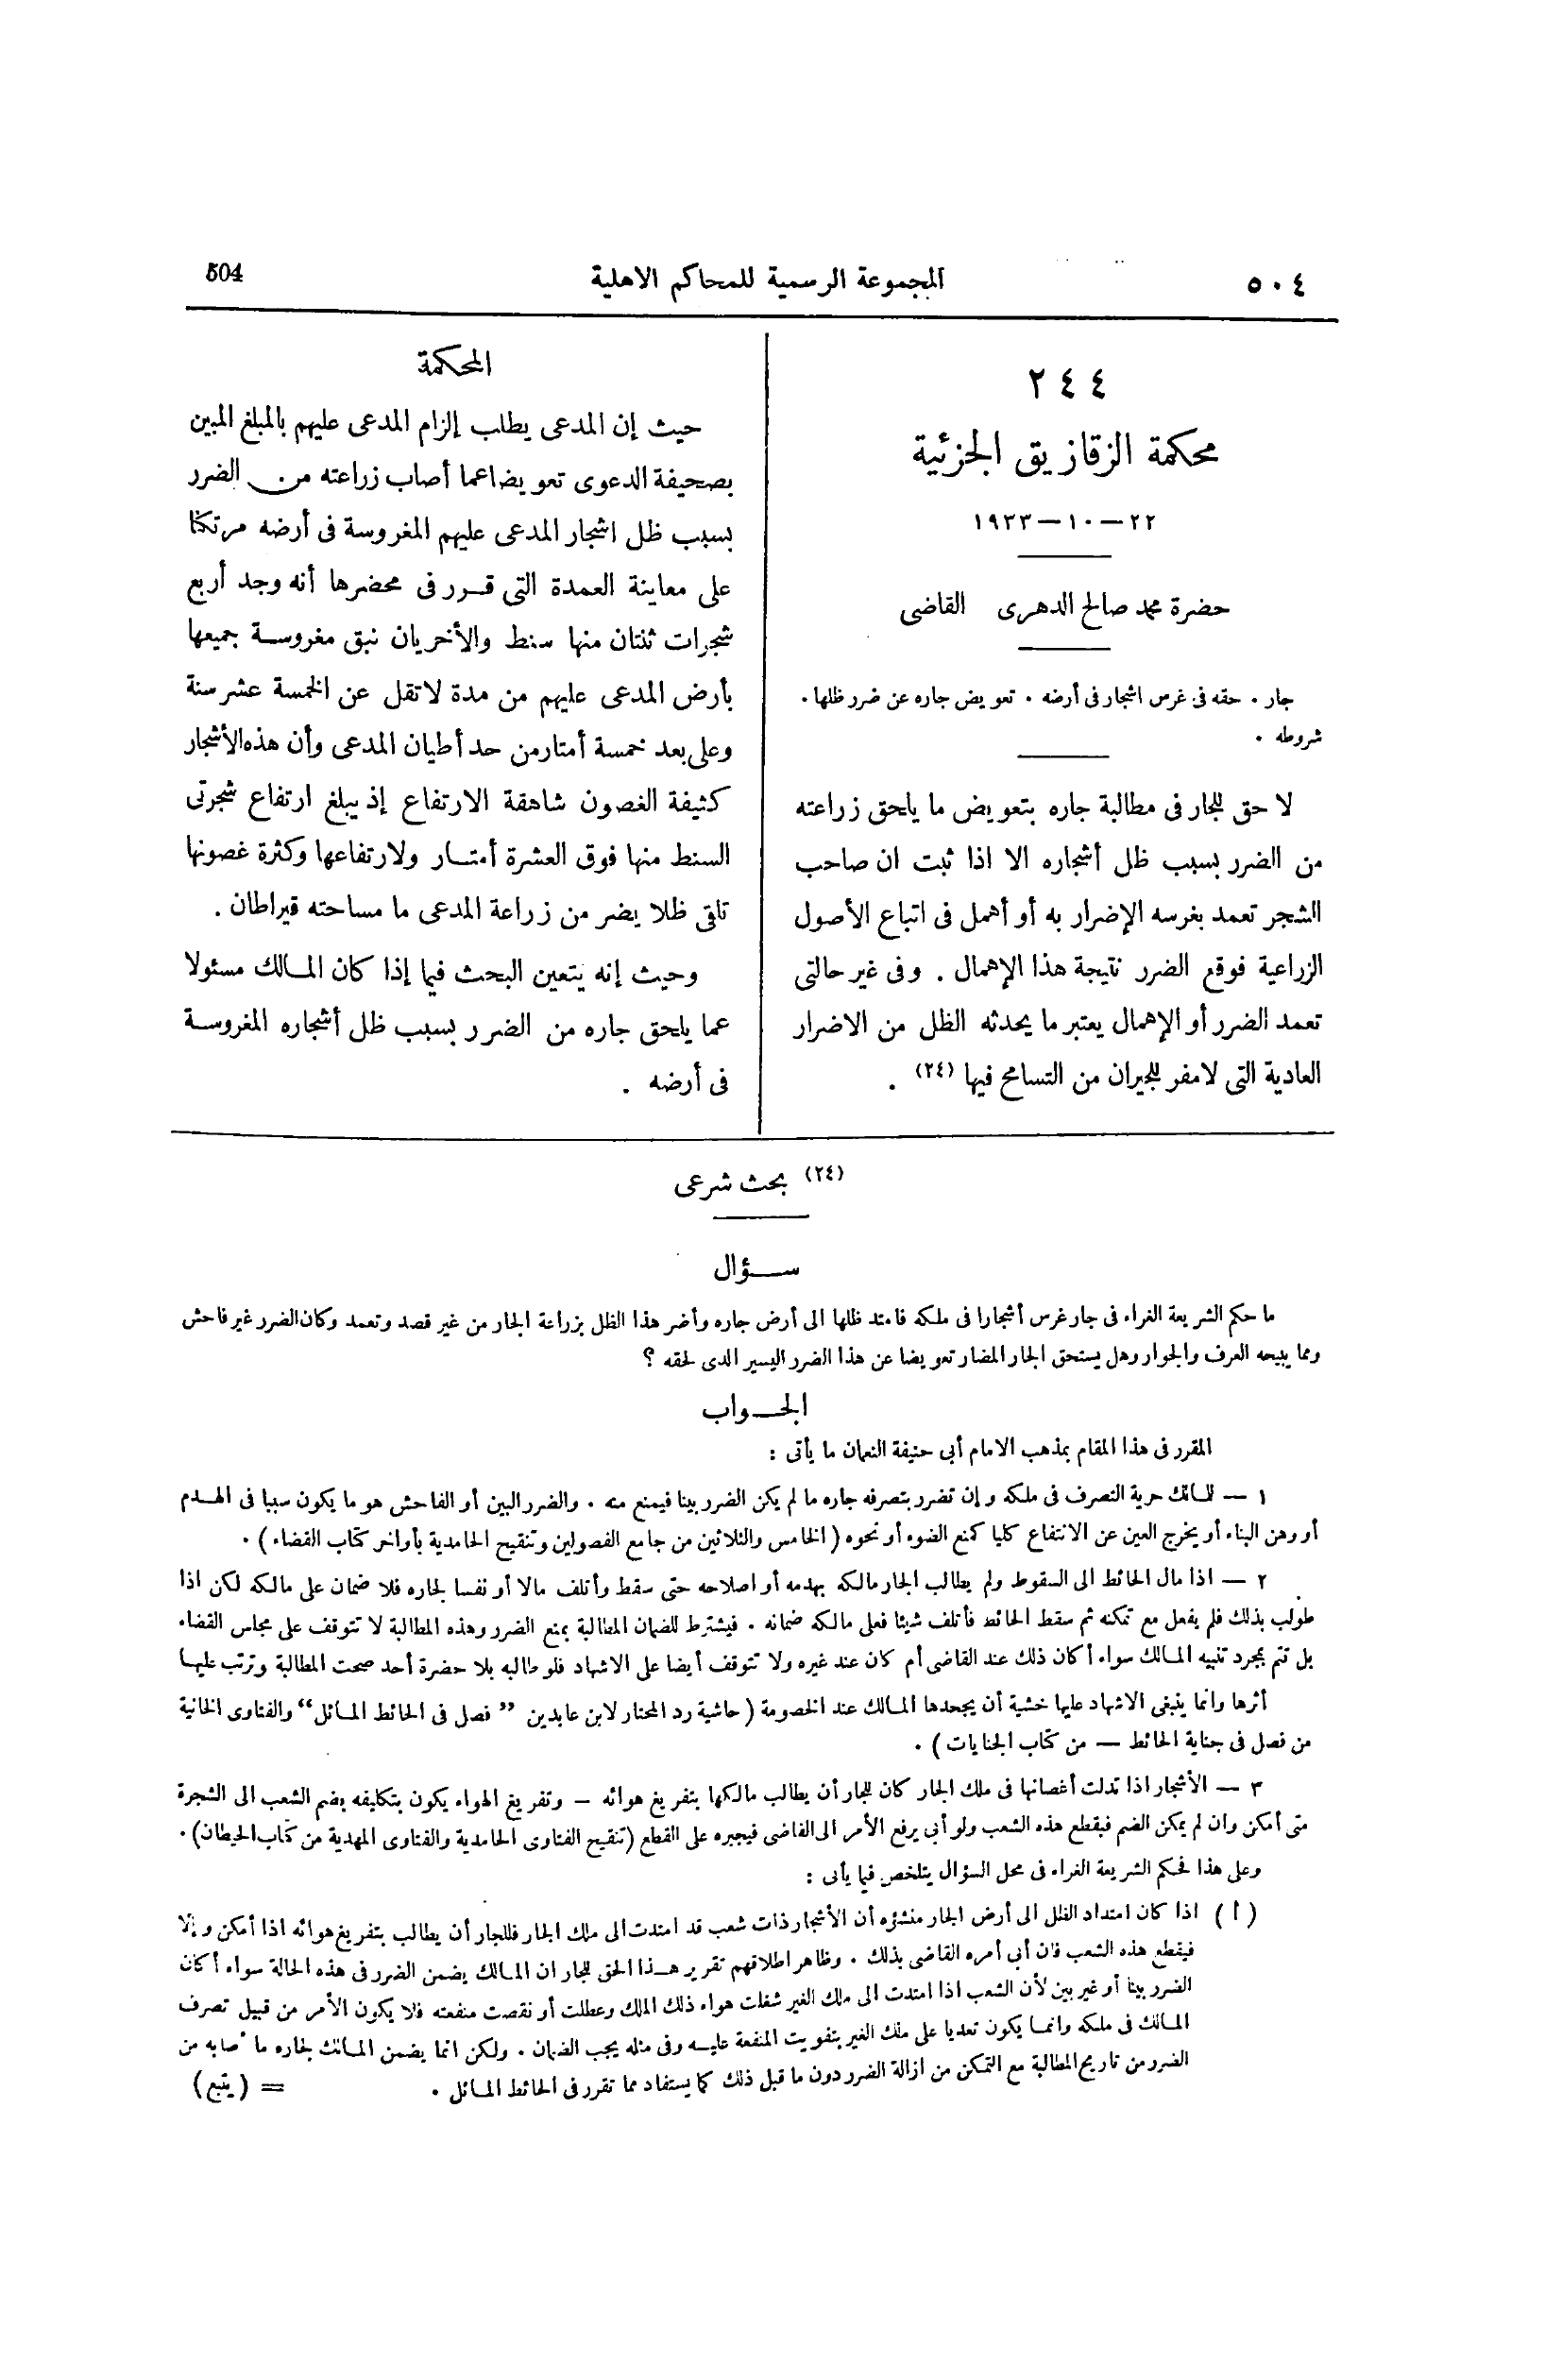 ٥٠٤
المجموعة الرسمية للمحاكم الاهلية
504
٢٤٤
محكمة الزقازيق الجزئية
٢٢-١٠-١٩٣٣
حضرة محمد صالح الدهرى القاضى
جار . حقه فى غرس اشجار فى أرضه . تعويض جاره عن ضرر ظلها .
شروطه .
لا حق للجار فى مطالبة جاره بتعويض ما يلحق زراعته
من الضرر بسبب ظل أشجاره الا اذا ثبت ان صاحب
الشجر تعمد بغرسه الإضرار به أو أهمل فى اتباع الأصول
الزراعية فوقع الضرر نتيجة هذا الإهمال . وفى غير حالتى
تعمد الضرر أو الإهمال يعتبر ما يحدثه الظل من الاضرار
العادية التى لامفر للجيران من التسامح فيها (٢٤) .
المحكمة
حيث إن المدعى يطلب إلزام المدعى عليهم بالمبلغ المبين
بصحيفة الدعوى تعويضا عما أصاب زراعته من الضرر
بسبب ظل اشجار المدعى عليهم المغروسة فى أرضه مرتكنا
على معاينة العمدة التى قرر فى محضرها أنه وجد أربع
شجرات ثنتان منها سنط والأخريان نبق مغروسة جميعها
بأرض المدعى عليهم من مدة لاتقل عن الخمسة عشر سنة
وعلى بعد خمسة أمتار من حد أطيان المدعى وأن هذه الأشجار
كثيفة الغصون شاهقة الارتفاع إذ يبلغ ارتفاع شجرتى
السنط منها فوق العشرة أمتار ولارتفاعها وكثرة غصونها
تلقى ظلا يضر من زراعة المدعى ما مساحته قيراطان .
وحيث إنه يتعين البحث فيما إذا كان المالك مسئولا
عما يلحق جاره من الضرر بسبب ظل أشجاره المغروسة
فى أرضه .
(٢٤) بحث شرعى
سؤال
ما حكم الشريعة الغراء فى جار غرس أشجارا فى ملكه فامتد ظلها الى أرض جاره وأضر هذا الظل بزراعة الجار من غير قصد وتعمد وكان الضرر غير فاحش
ومما يبيحه العرف والجوار وهل يستحق الجار المضار تعويضا عن هذا الضرر اليسير الدى لحقه ؟
الجواب
المقرر فى هذا المقام بمذهب الامام أبى حنيفة النعمان ما يأتى :
١ — للمالك حرية التصرف فى ملكه وإن تضرر بتصرفه جاره ما لم يكن الضرر بينا فيمنع منه . والضرر البين أو الفاحش هو ما يكون سببا فى الهدم
أو وهن البناء أو يخرج العين عن الانتفاع كليا كمنع الضوء أو نحوه ( الخامس والثلاثين من جامع الفصولين وتنقيح الحامدية بأواخر كتاب القضاء ) .
٢ — اذا مال الحائط الى السقوط ولم يطالب الجار مالكه بهدمه أو اصلاحه حتى سقط وأتلف مالا أو نفسا لجاره فلا ضمان على مالكه لكن اذا
طولب بذلك فلم يفعل مع تمكنه ثم سقط الحائط فأتلف شيئا فعلى مالكه ضمانه . فيشترط للضمان المطالبة بمنع الضرر وهذه المطالبة لا تتوقف على مجلس القضاء
بل تتم بمجرد تنبيه المالك سواء أكان ذلك عند القاضى أم كان عند غيره ولا تتوقف أيضا على الاشهاد فلو طالبه بلا حضرة أحد صحت المطالبة وترتب عليها
أثرها وانما ينبغى الاشهاد عليها خشية أن يجحدها المالك عند الخصومة ( حاشية رد المحتار لابن عابدين ” فصل فى الحائط المائل “ والفتاوى الخانية
من فصل فى جناية الحائط — من كتاب الجنايات ) .
٣ — الأشجار اذا تدلت أغصانها فى ملك الجار كان للجار أن يطالب مالكها بتفريغ هوائه — وتفريغ الهواء يكون بتكليفه بضم الشعب الى الشجرة
متى أمكن وان لم يمكن الضم فبقطع هذه الشعب ولو أبى يرفع الأمر الى القاضى فيجبره على القطع (تنقيح الفتاوى الحامدية والفتاوى المهدية من كتاب الحيطان) .
وعلى هذا فحكم الشريعة الغراء فى محل السؤال يتلخص فيما يأتى :
( أ ) اذا كان امتداد الظل الى أرض الجار منشؤه أن الأشجار ذات شعب قد امتدت الى ملك الجار فللجار أن يطالب بتفريغ هوائه اذا أمكن وإلا
فيقطع هذه الشعب فان أبى أمره القاضى بذلك . وظاهر اطلاقهم تقرير هذا الحق للجار ان المالك يضمن الضرر فى هذه الحالة سواء أكان
الضرر بينا أو غير بين لأن الشعب اذا امتدت الى ملك الغير شغلت هواء ذلك الملك وعطلت أو نقصت منفعته فلا يكون الأمر من قبيل تصرف
المالك فى ملكه وانما يكون تعديا على ملك الغير بتفويت المنفعة عليه وفى مثله يجب الضمان . ولكن انما يضمن المالك لجاره ما أصابه من
الضرر من تاريخ المطالبة مع التمكن من ازالة الضرر دون ما قبل ذلك كما يستفاد مما تقرر فى الحائط المائل .
= (يتبع)